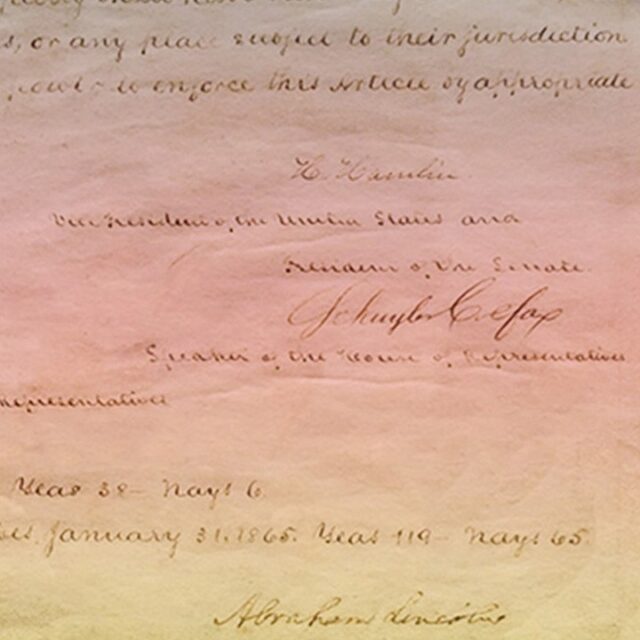 s, or any place subject to their jurisdiction
to enforce this Article by appropriate
H. Hamlin
Vice President of the United States and
President of the Senate.
Schuyler Colfax
Speaker of the House of Representatives
Representatives
Yeas 38— Nays 6.
January 31, 1865. Yeas 119— Nays 65
Abraham Lincoln